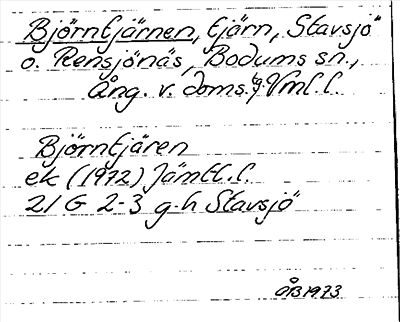 Björntjärnen, tjärn, Stavsjö
o. Rensjönäs, Bodums sn.,
Ång. v. doms. tg, Vml. l.
Björntjären
ek (1972) Jämtl. l.
21 G 2-3 g-h Stavsjö
ÅB 1973